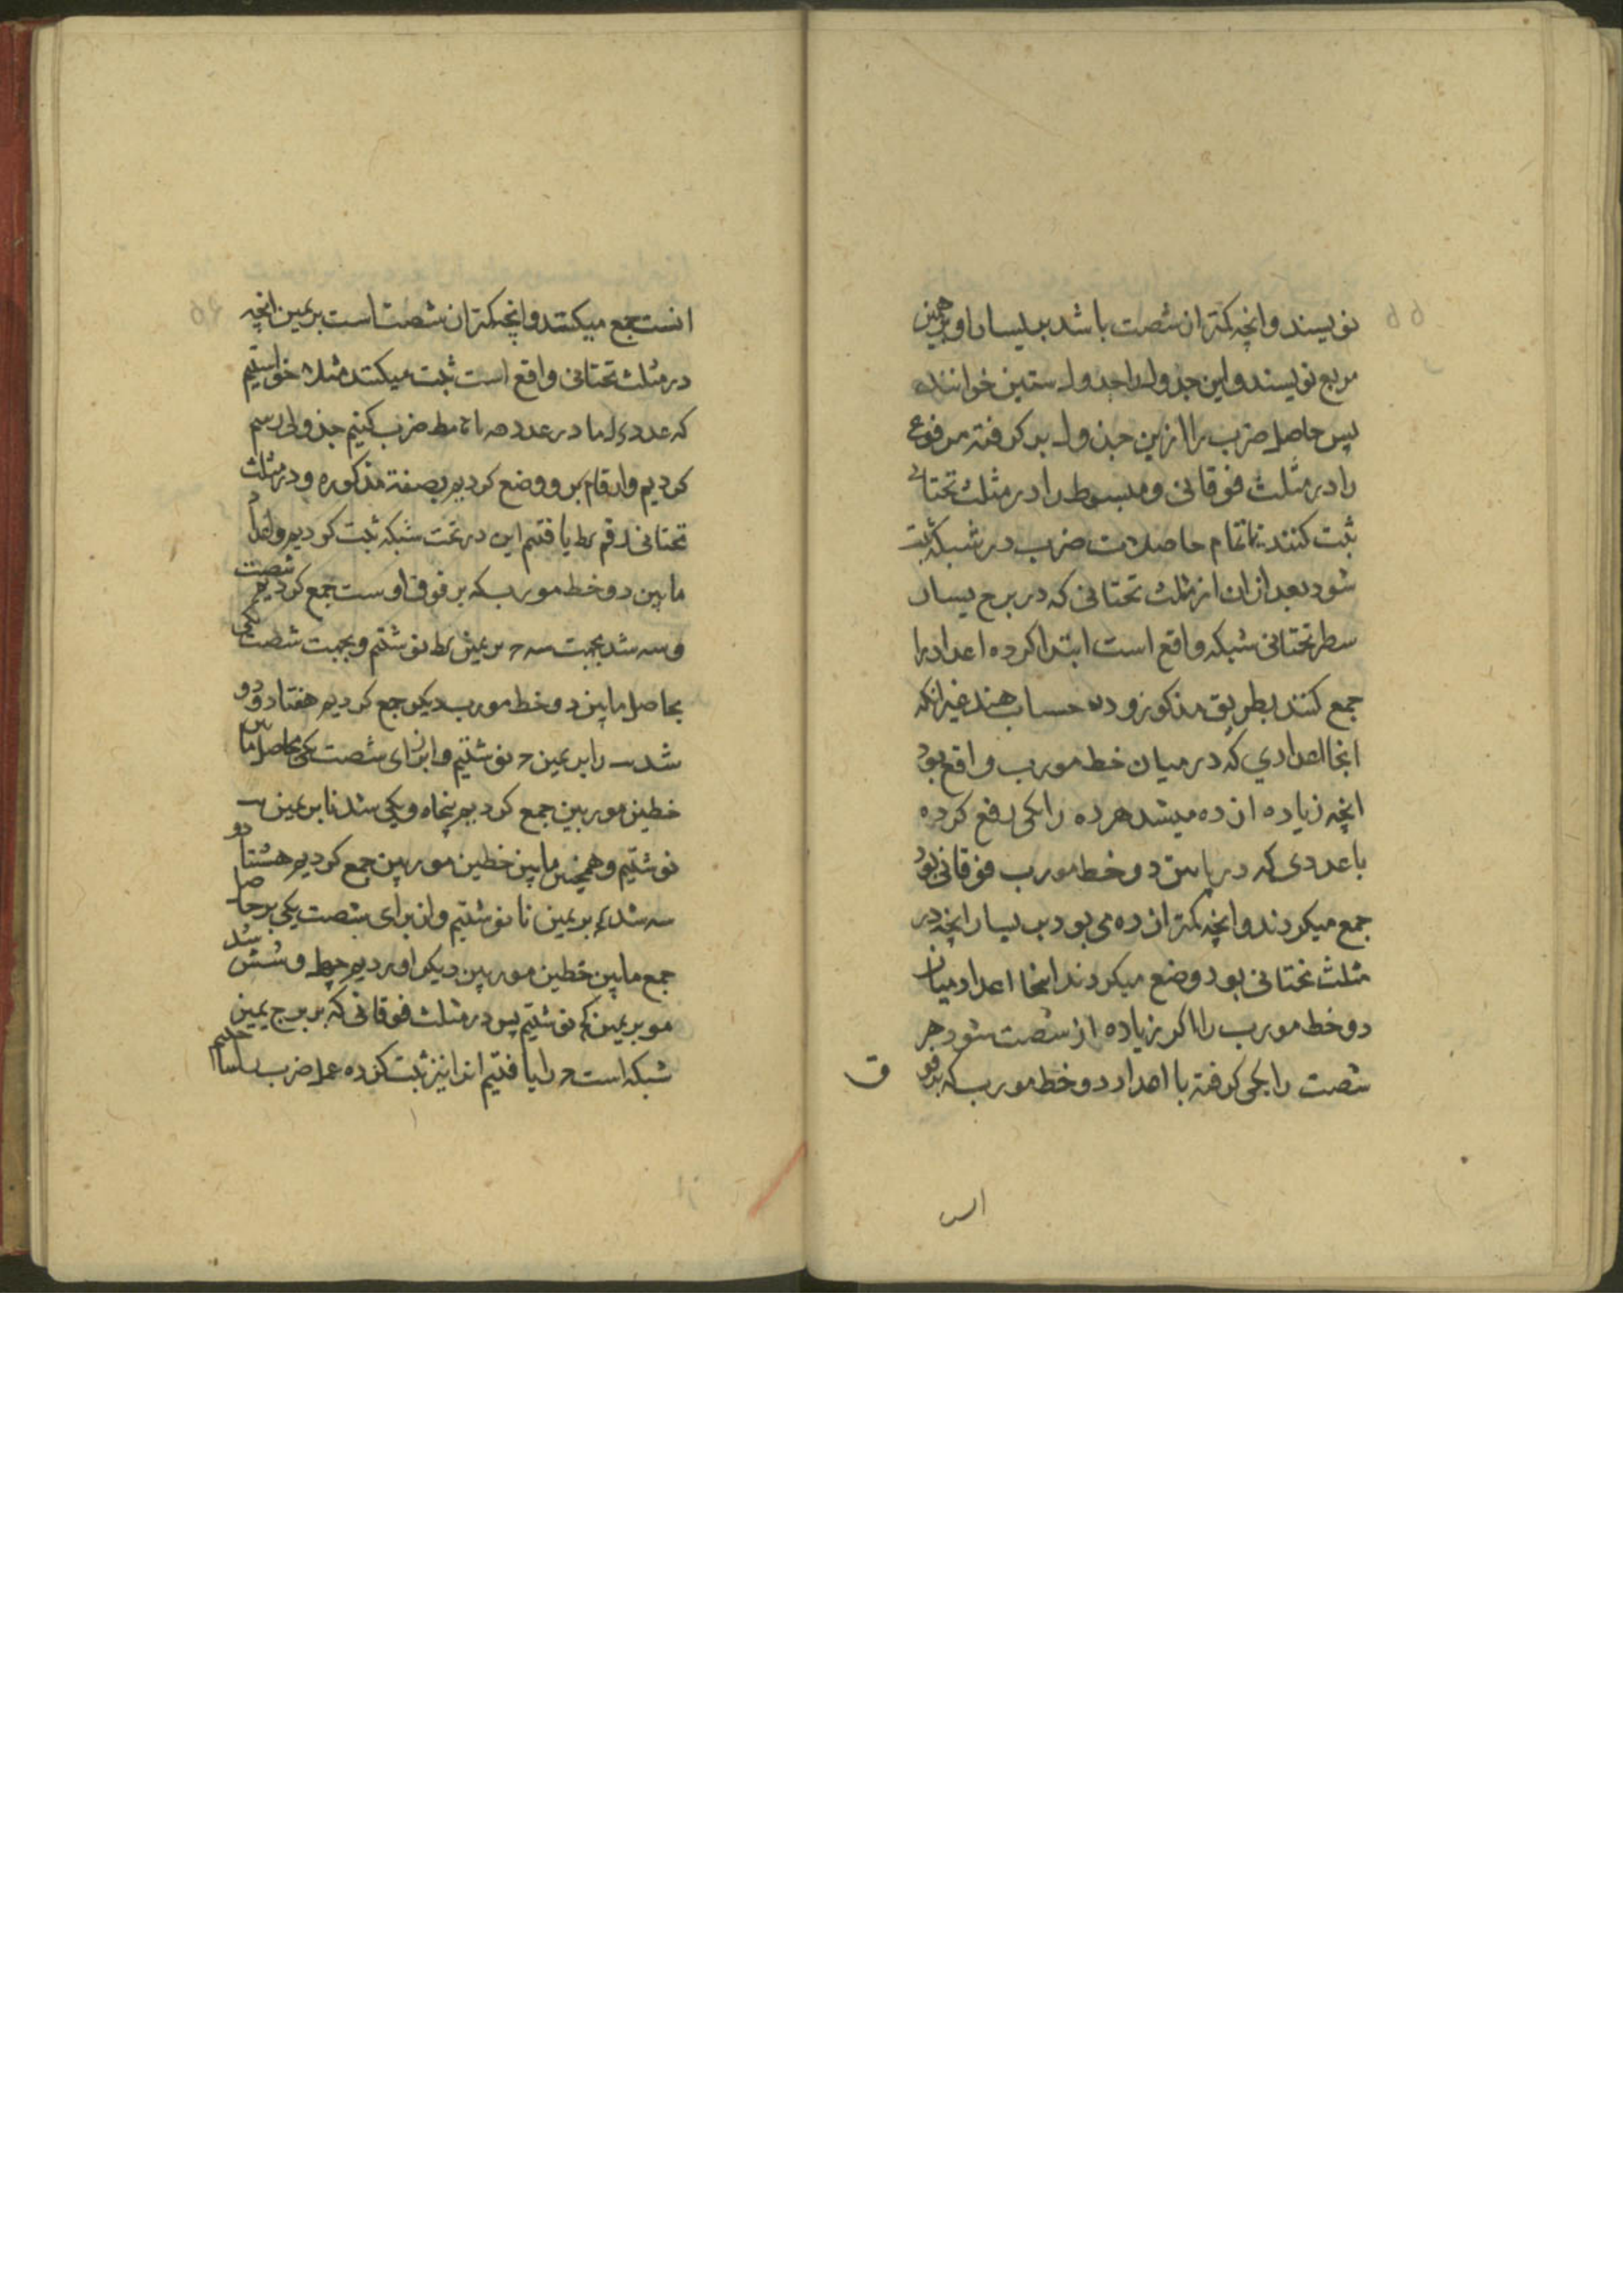 نویسند و انچه کمتر از شصت باشد بر یسار او و همین
مربع نویسند و این جدول را جدول ستین خوانند
پس حاصل ضرب را ازین جدول بر کرفته مرفوع
را در مثلث فوقانی و مبسوط را در مثلث تحتانی
ثبت کنند تا تمام حاصلات ضرب در شبکه ثبت
شود بعد ازان از مثلث تحتانی که در برج یسار
سطر تحتانی شبکه واقع است ابتدا کرده اعداد را
جمع کنند بطریق مذکور و در حساب هند غیر انکه
انجا اعدادی که در میان خط مورب واقع بود
انچه زیاده از ده میشد هر ده را یکی رفع کرده
با عددی که در مابین دو خط مورب فوقانی بود
جمع میکردند و انچه کمتر از ده می بود بر یسار انچه در
مثلث تحتانی بود وضع میکردند اینجا اعداد میان
دو خط مورب را اکر زیاده از شصت شود هر
شصت را یکی کرفته با اعداد دو خط مورب که بر فو
ق
انست جمع میکنند و انچه کمتر از شصت است بر یمین انچه
در مثلث تحتانی واقع است ثبت میکنند مثلا خواستیم
که عدد در عدد مط ضرب کنیم جدولی رسم
کردیم و ارقام بر و وضع کردیم بصفة مذکوره و در مثلث
تحتانی رقم یط یافتیم این در تحت شبکه ثبت کردیم و اعداد
مابین دو خط مورب که بر فوق اوست جمع کردیم شصت
و سه شد بجهت سه ح بر یمین یط نوشتیم و بجهت شصت یکی
بحاصل مابین دو خط مورب دیکر جمع کردیم هفتاد و دو
شد را بر یمین ح نوشتیم و از برای شصت یکی بحاصل مابین
خطین موربین جمع کردیم پنجاه و یکی شد نا بر یمین
نوشتیم و همچنین مابین خطین موربین جمع کردیم هشتاد و
سه شد بر یمین نا نوشتیم و از برای شصت یکی بر حاصل
جمع مابین خطین موربین دیکر اوردیم چهل و شش شد
مو بر یمین نوشتیم پس در مثلث فوقانی که بر برج یمین
شبکه است را یافتیم انرا نیز ثبت کرده عمل ضرب